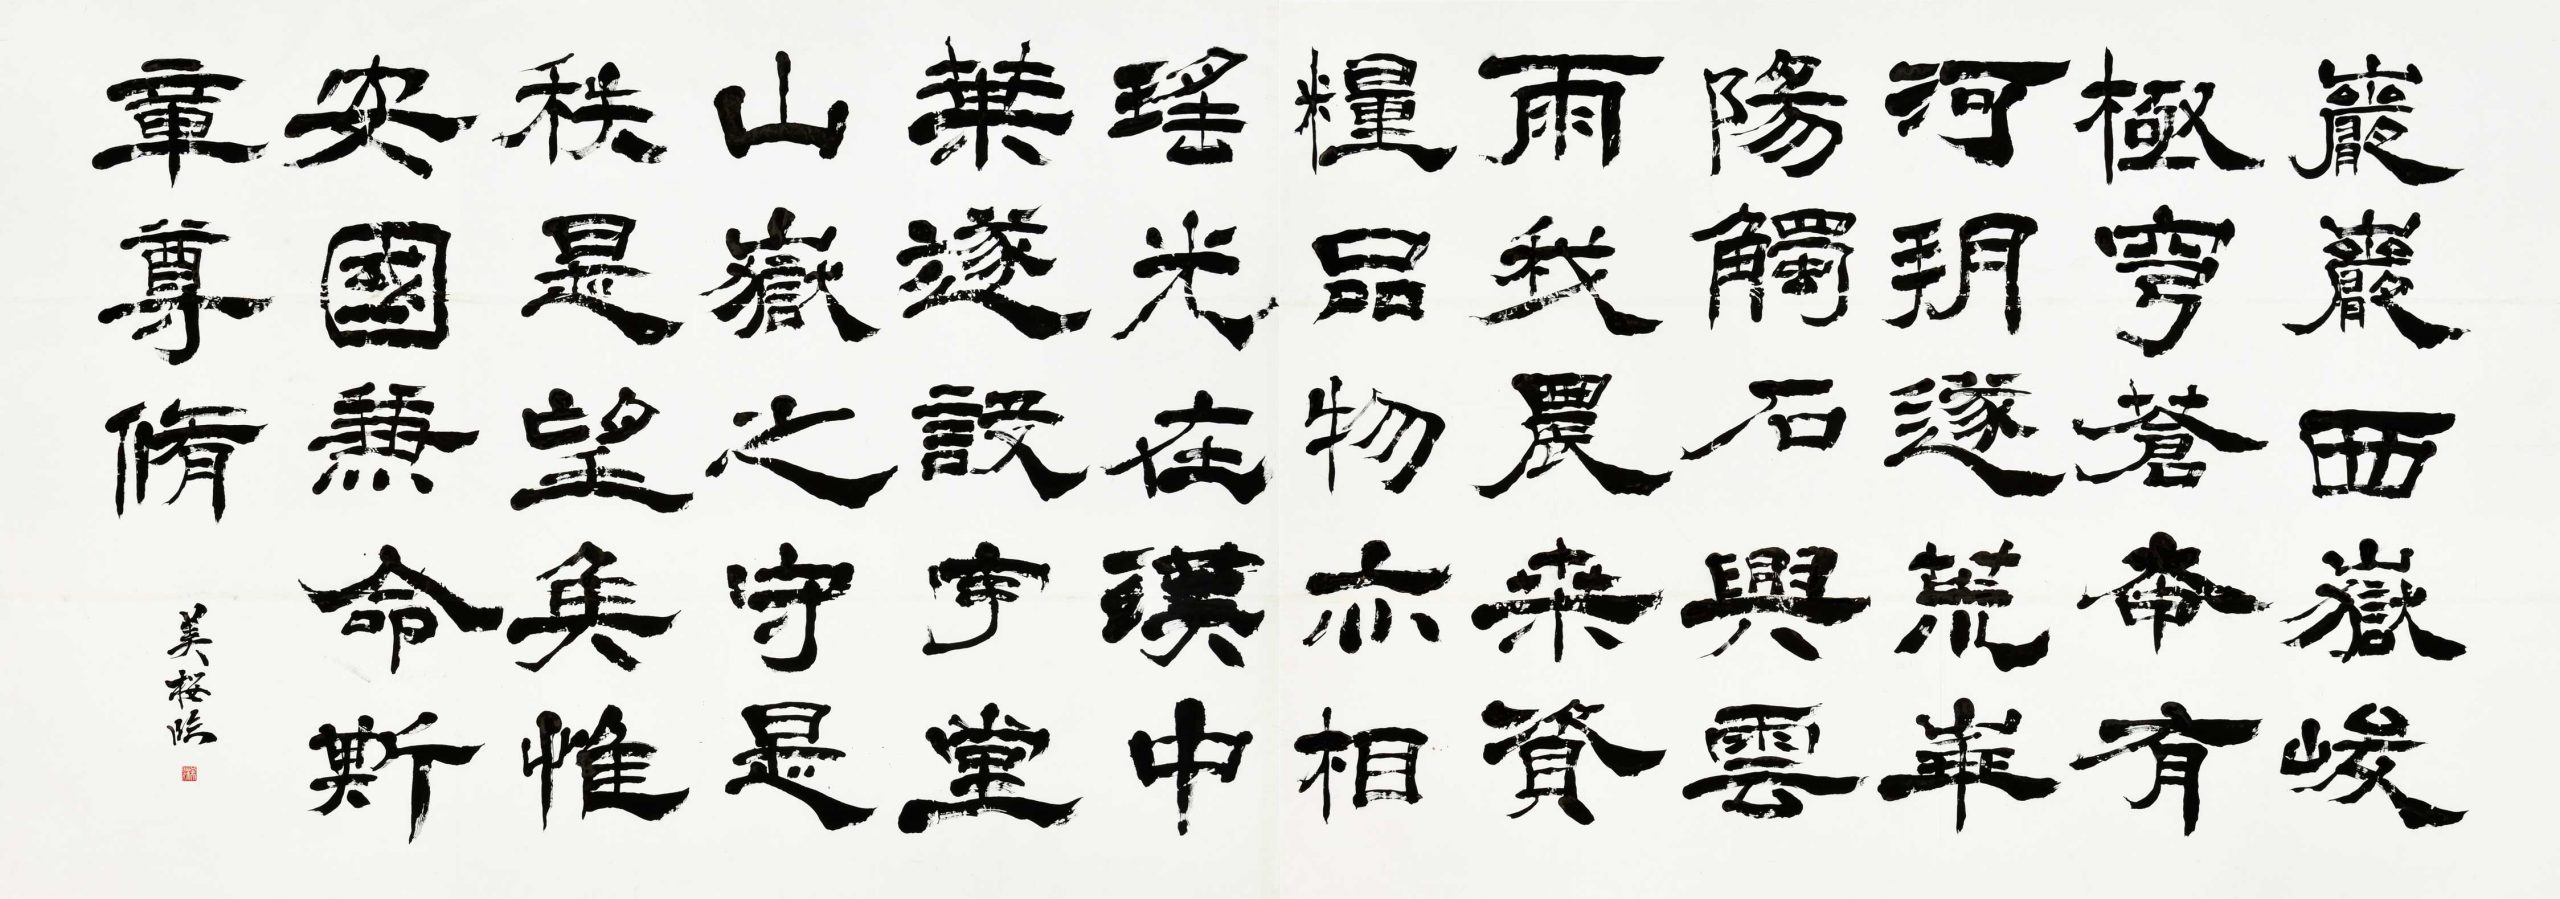 巖巖西嶽峻
極穹蒼奄有
河朔遂荒華
陽觸石興雲
雨我農桑資
糧品物亦相
瑤光在漢中
葉遂設宇堂
山嶽之守是
秩是望侯惟
安國兼命斯
章尊脩
美桜臨